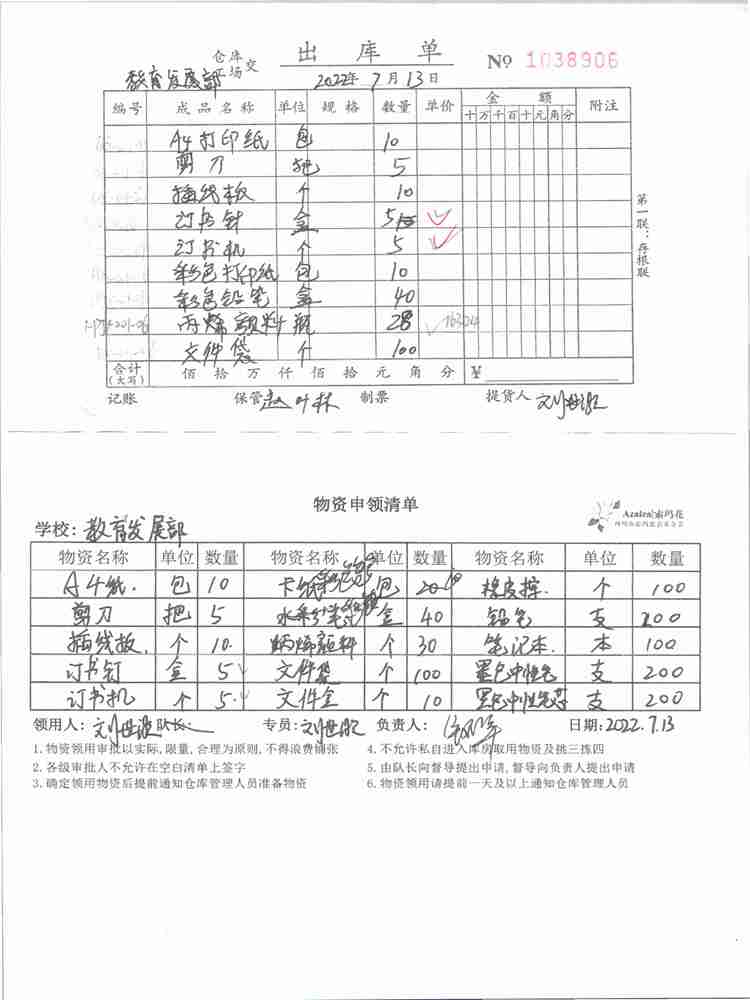 出库单
仓库
工场 交
教育发展部
2022年7月13日
№ 1038906
编号 成品名称 单位 规格 数量 单价 金额 附注
十万千百十元角分
A4打印纸 包 10
剪刀 把 5
插线板 个 10
订书针 盒 5
订书机 个 5
彩色打印纸 包 10
彩色铅笔 盒 40
丙烯颜料 瓶 28
文件袋 个 100
第一联：存根联
合计(大写) 佰拾万仟佰拾元角分 ¥
记账 保管 赵叶林 制票 提货人 刘世波
物资申领清单
Azalea 索玛花
学校: 教育发展部
物资名称 单位 数量 物资名称 单位 数量 物资名称 单位 数量
A4纸. 包 10 卡纸 包 10 橡皮擦. 个 100
剪刀 把 5 盒 40 铅笔 支 200
插线板. 个 10. 炳烯颜料 个 30 笔记本. 本 100
订书钉 盒 5 文件袋 个 100 墨色中性笔 支 200
订书机 个 5. 文件盒 个 10 墨色中性笔芯 支 200
领用人: 刘世波 队长: 专员: 刘世波 负责人: 日期: 2022.7.13
1.物资领用审批以实际,限量,合理为原则,不得浪费铺张
4.不允许私自进入库房取用物资及挑三拣四
2.各级审批人不允许在空白清单上签字
5.由队长向督导提出申请,督导向负责人提出申请
3.确定领用物资后提前通知仓库管理人员准备物资
6.物资领用请提前一天及以上通知仓库管理人员